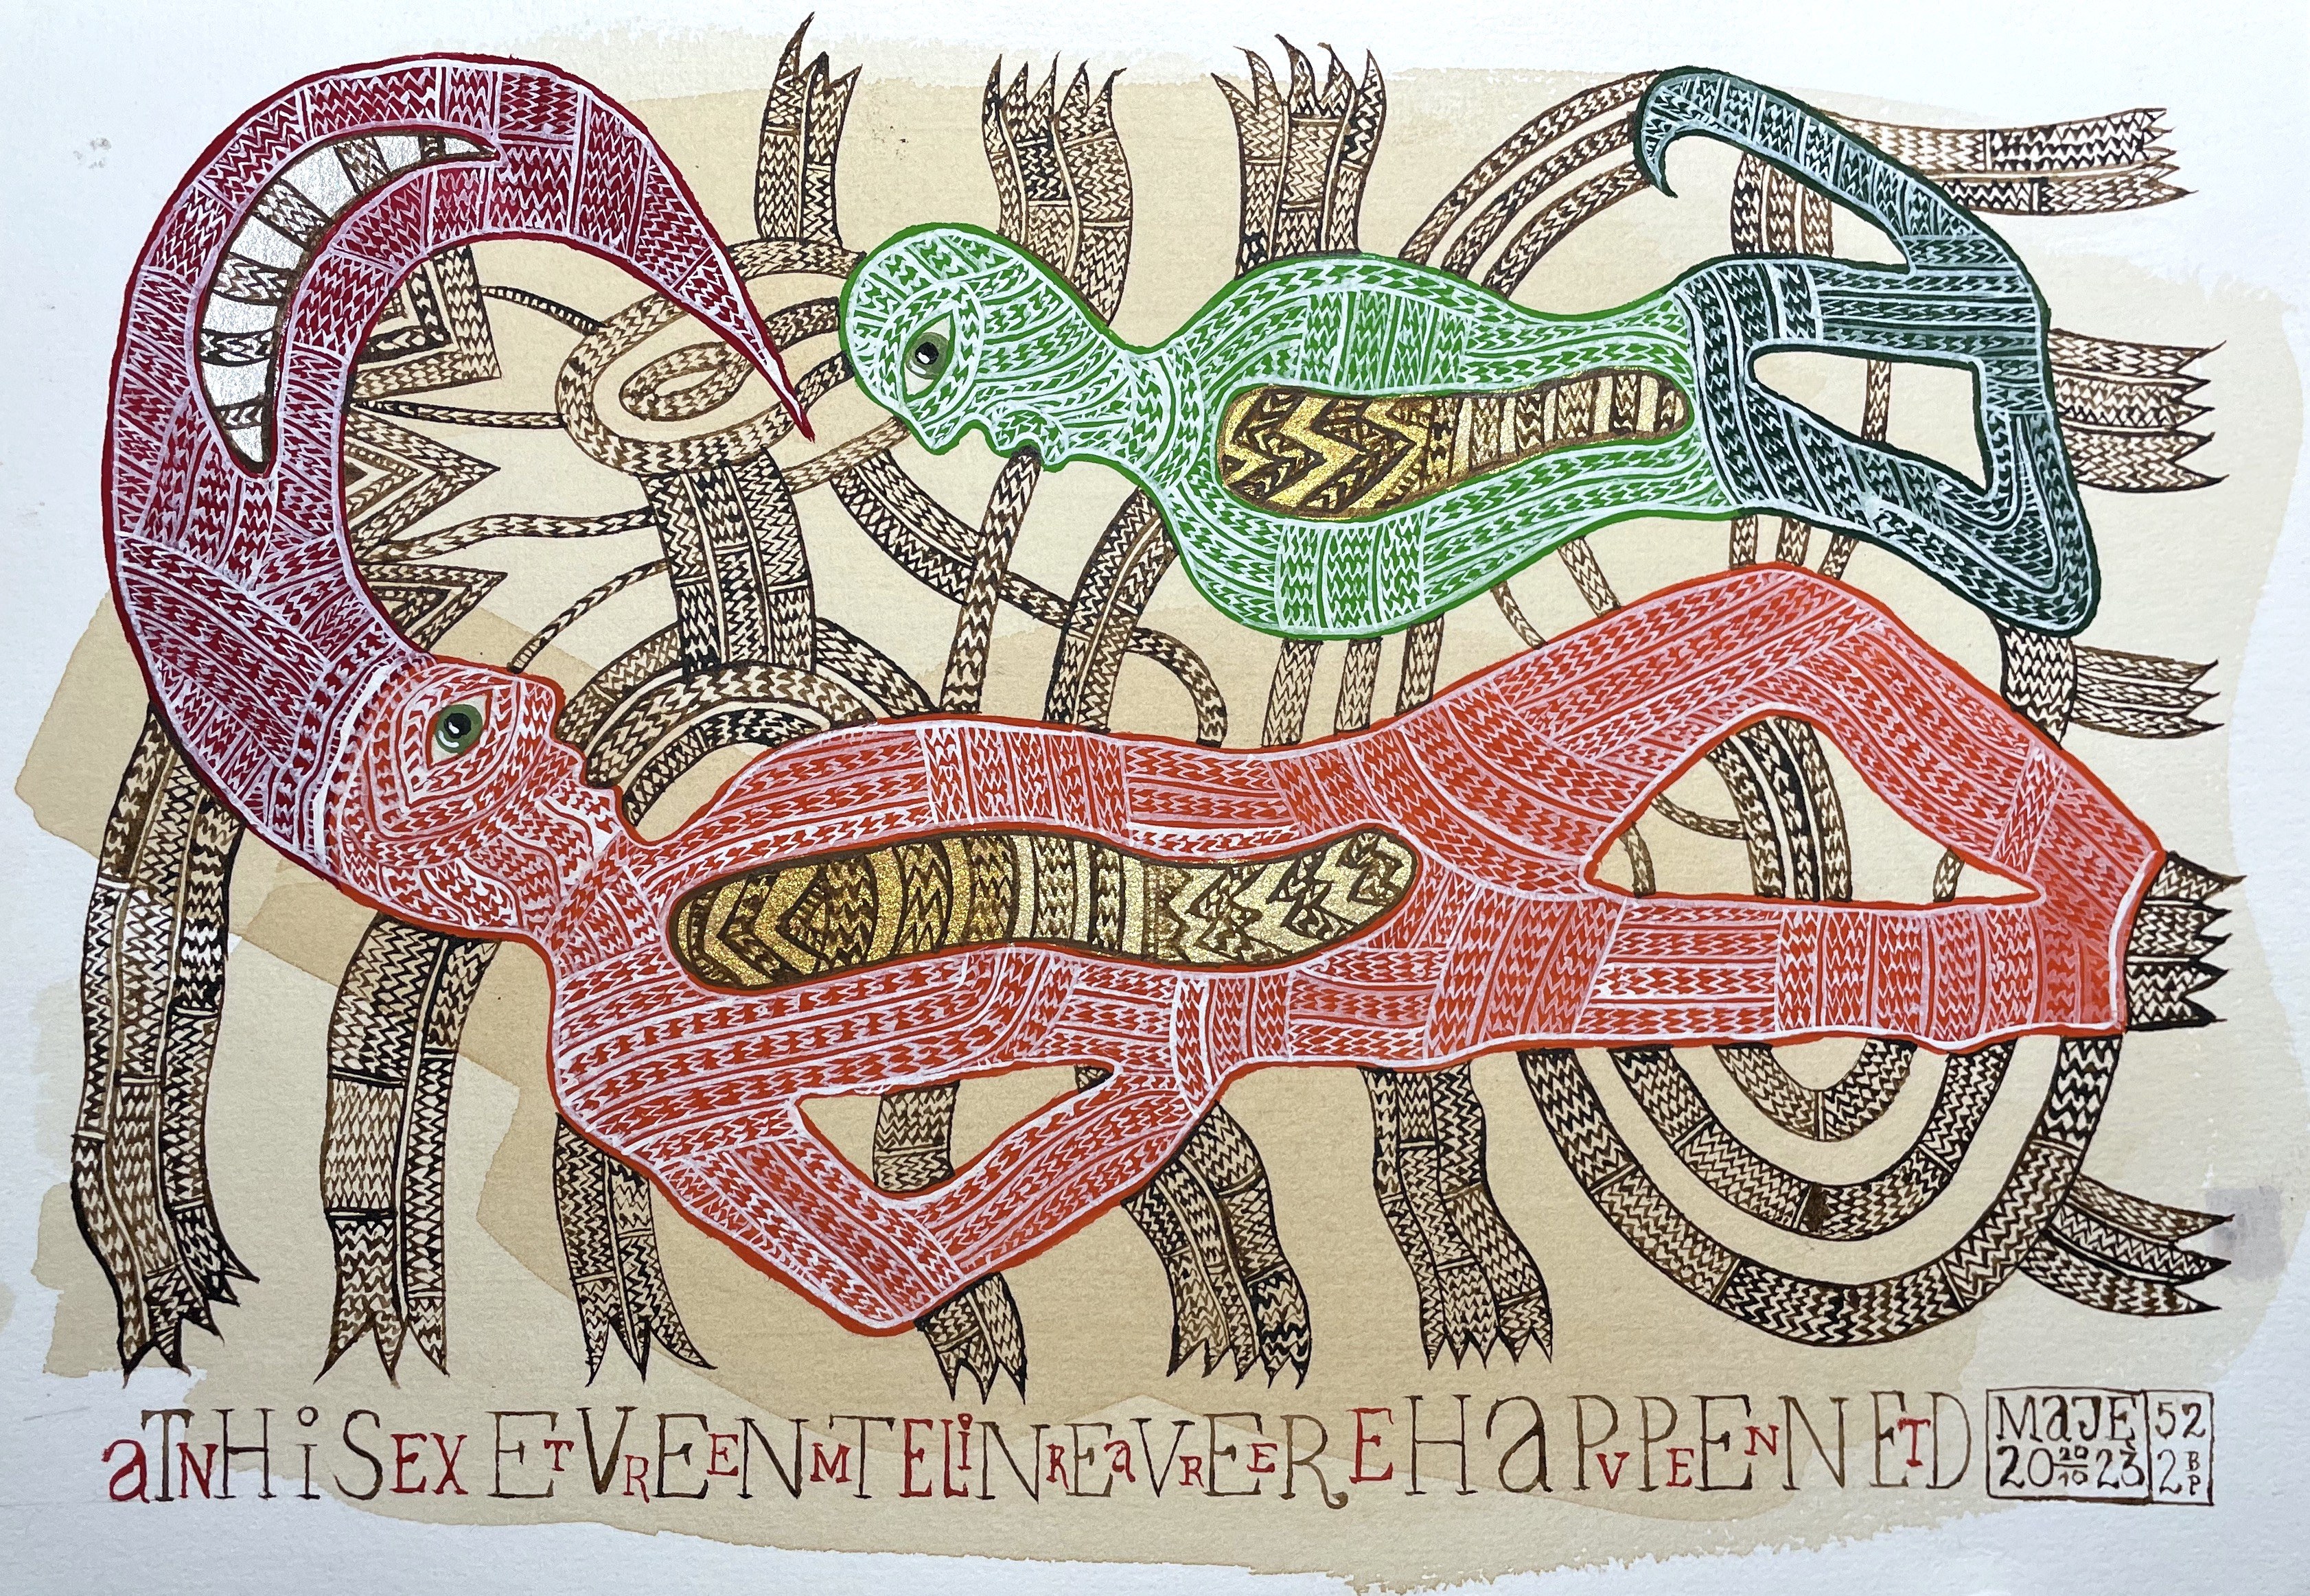 aTNHiSEX ETVREENMTELiNREaVREERE HaPVPEENNETD
MaJE 52
20 20/10 23 2 BP